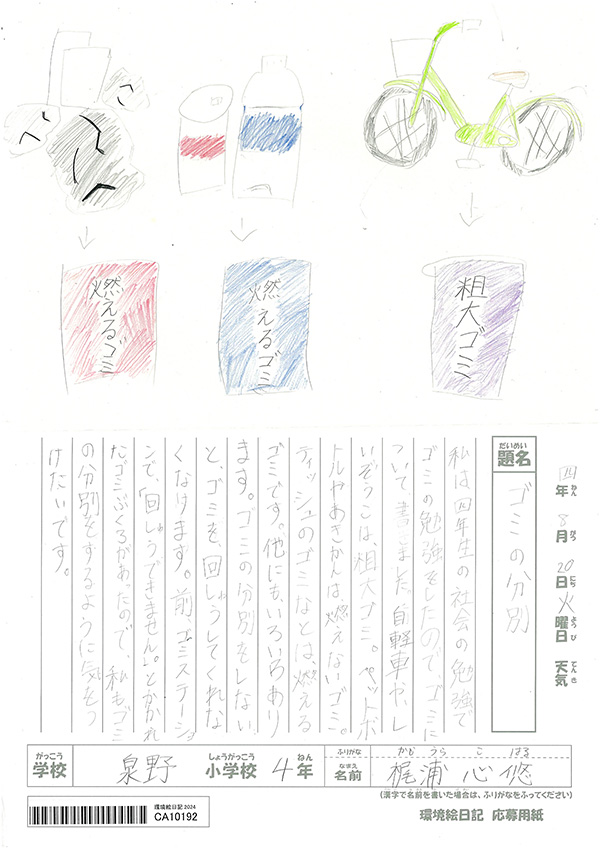 燃えるゴミ
燃えるゴミ
粗大ゴミ
四年 8月 20日 火曜日 天気
ねん がつ にち ようび てんき
だいめい
題名
ゴミの分別
私は四年生の社会の勉強で
ゴミの勉強をしたので、ゴミに
ついて、書きました。自軽車や、レ
いぞうこは、粗大ゴミ。ペットボ
トルやあきかんは燃えないゴミ。
ティッシュのゴミなどは、燃える
ゴミです。他にも、いろいろあり
ます。ゴミの分別をしない
と、ゴミを、回しゅうしてくれな
くなります。前、ゴミステーショ
ンで、「回しゅうできません。」とかかれ
たゴミぶくろがあったので、私もゴミ
の分別をするように気をつ
けたいです。
がっこう しょうがっこう ねん ふりがな かじ うら こ はる
学校 泉野 小学校 4年 なまえ 名前 梶浦 心悠
(漢字で名前を書いた場合は、ふりがなをふってください)
環境絵日記 2024
CA10192
環境絵日記 応募用紙